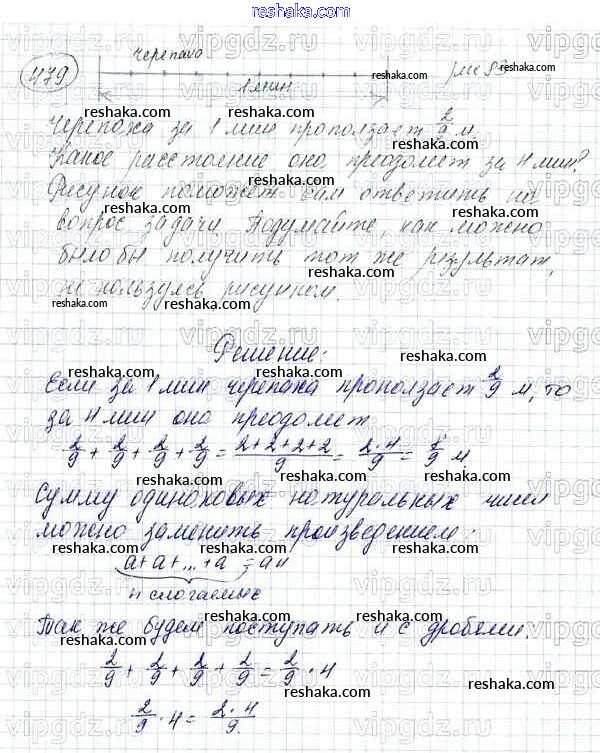 reshaka.com
479
черепаха
1 мин
рис 83
Черепаха за 1 мин проползает 2/9 м.
Какое расстояние она преодолеет за 4 мин?
Рисунок поможет вам ответить на
вопрос задачи. Подумайте, как можно
было бы получить тот же результат,
не пользуясь рисунком.
Решение:
Если за 1 мин черепаха проползает 2/9 м, то
за 4 мин она преодолеет
2/9 + 2/9 + 2/9 + 2/9 = (2+2+2+2)/9 = (2·4)/9 = 8/9 м
Сумму одинаковых натуральных чисел
можно заменить произведением:
a + a + ... + a = an
n слагаемых
Так же будем поступать и с дробями.
2/9 + 2/9 + 2/9 + 2/9 = 2/9 · 4
2/9 · 4 = (2·4)/9.